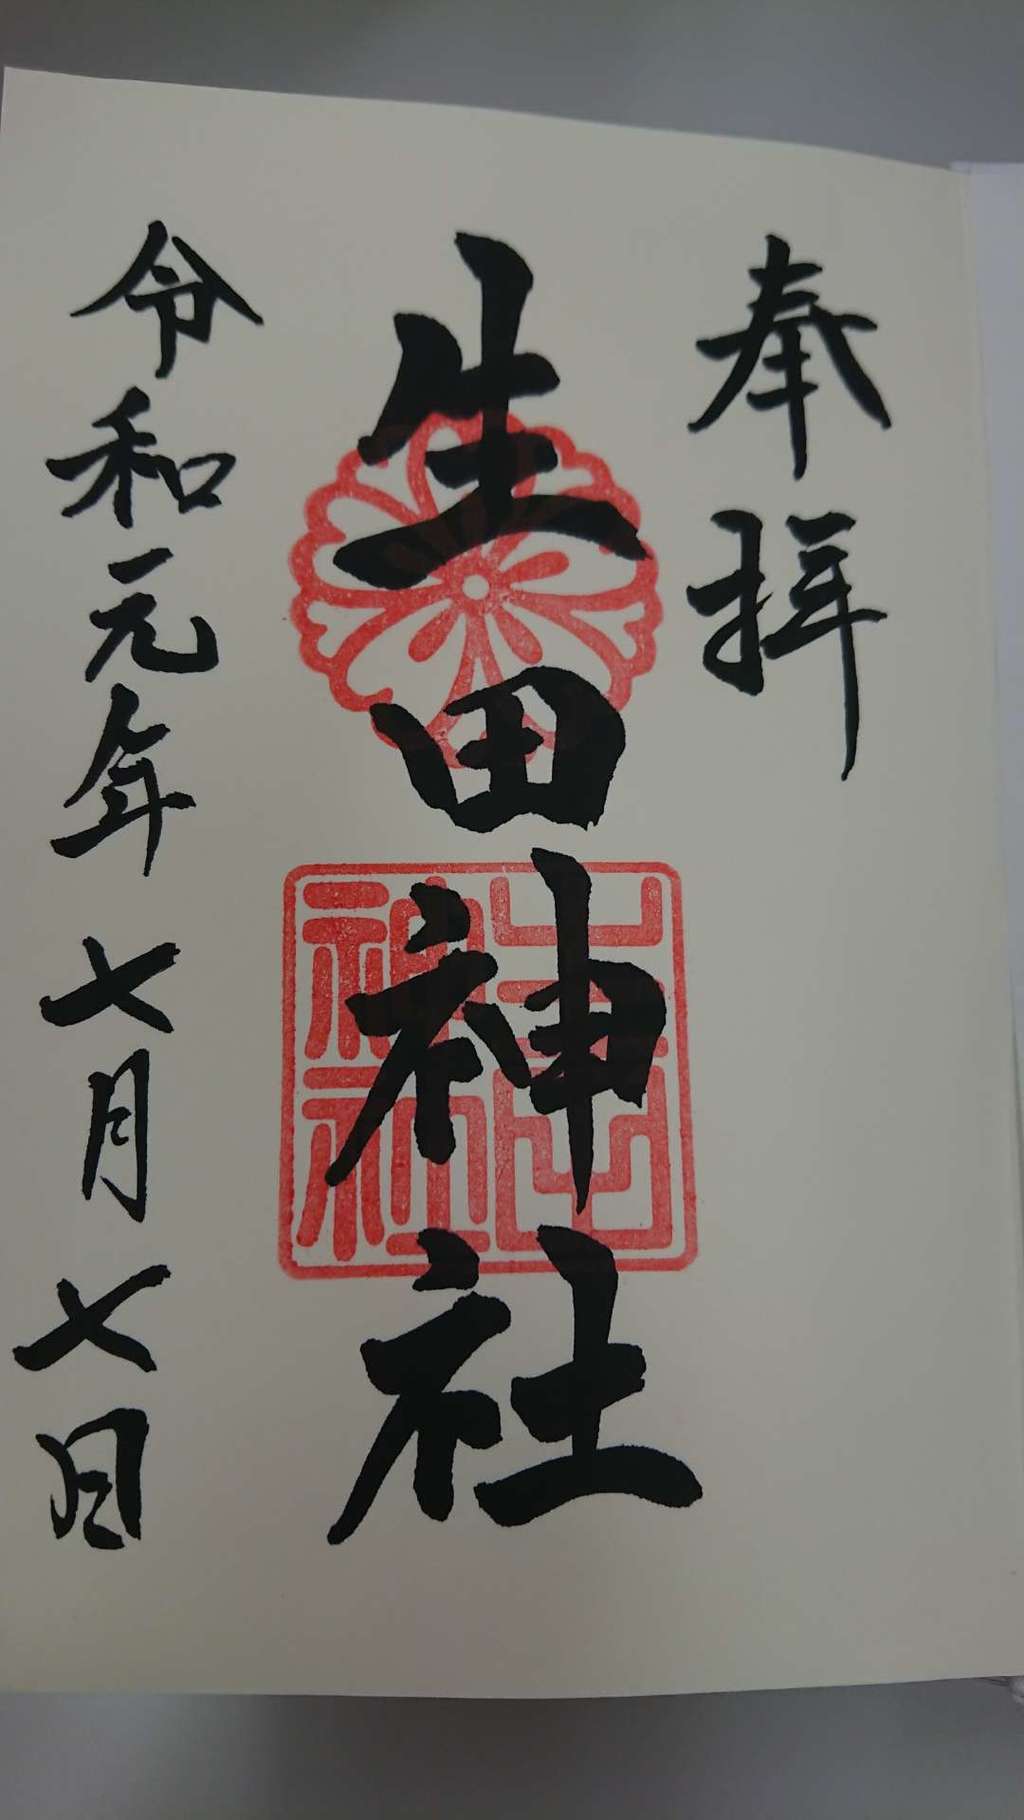 奉拝
生田神社
生田神社
令和元年七月七日